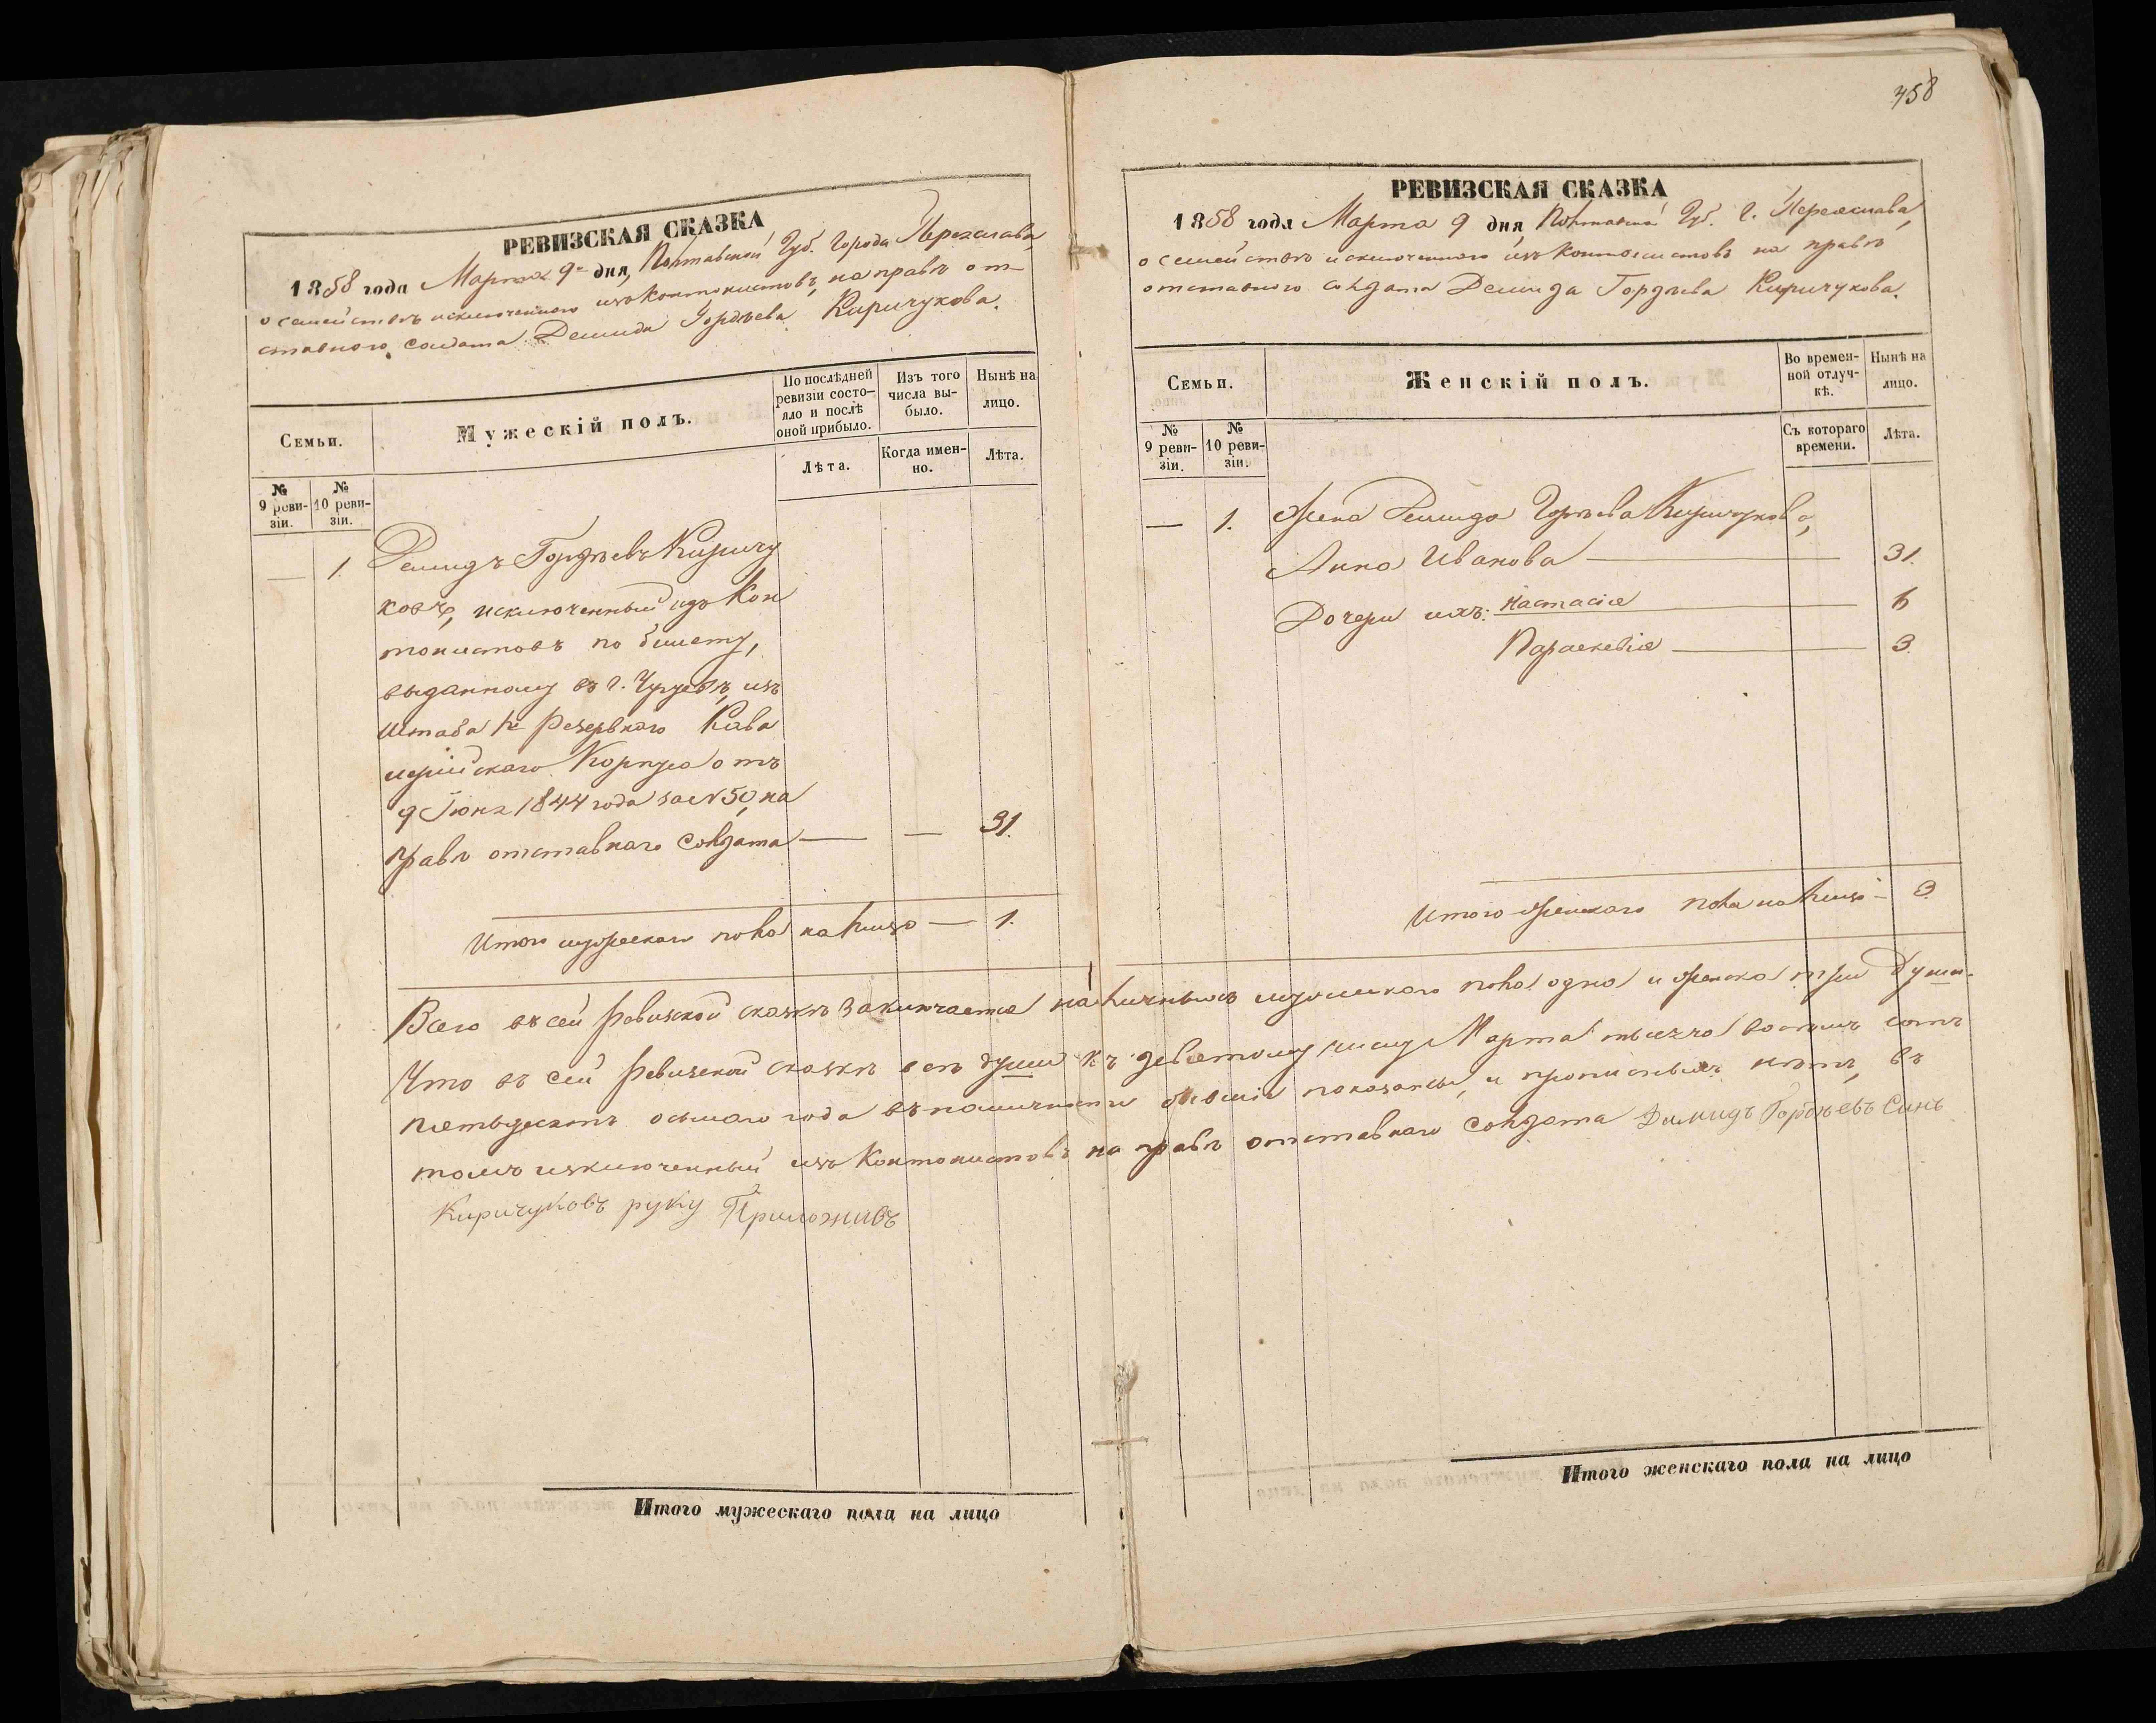 458
РЕВИЗСКАЯ СКАЗКА
1858 года Марта 9го дня, Полтавской Губ. Города Переяслава,
о семействѣ исключеннаго изъ Контонистовъ, на правѣ от-
ставного солдата Демида Гордѣева Киричукова.
Семьи.
Мужескій полъ.
По послѣдней ревизіи состо-
яло и послѣ оной прибыло.
Изъ того числа вы-
было.
Нынѣ на лицо.
№ 9 реви-
зіи.
№ 10 реви-
зіи.
Лѣта.
Когда имен-
но.
Лѣта.
— 1. Демидъ Гордѣевъ Киричу
ковъ, исключенный изъ Кон
тонистовъ по билету,
выданному въ г. Чугуевѣ, изъ
Штаба Резервнаго Кава
лерійскаго Корпуса отъ
9 Іюня 1844 года за № 50, на
правѣ отставнаго Солдата — — 31.
Итого мужескаго пола на лицо — 1.
РЕВИЗСКАЯ СКАЗКА
1858 года Марта 9 дня Полтавской Губ. г. Переяслава,
о семействѣ исключеннаго изъ Контонистовъ на правѣ
отставного солдата Демида Гордѣева Киричукова.
Семьи.
Женскій полъ.
Во времен-
ной отлуч-
кѣ.
Нынѣ на лицо.
№ 9 реви-
зіи.
№ 10 реви-
зіи.
Съ котораго времени.
Лѣта.
— 1. Жена Демида Гордѣева Киричукова,
Анна Иванова — 31.
Дочери ихъ: Настасія —
Параскевія — 3.
Итого женскаго пола на лицо — 3
Всего въ сей ревизской сказкѣ заключается наличныхъ мужескаго пола одна и женска три Души.
Что въ сей Ревизской сказкѣ всѣ души къ девятому числу Марта тысяча восемь сотъ
пятьдесятъ осьмаго года въ наличности бывшія показаны, и прописныхъ нѣтъ, въ
томъ изключенный изъ Контонистовъ на правѣ отставнаго Солдата Димидъ Гордѣевъ Синъ
Киричуковъ руку Приложивъ
Итого мужескаго пола на лицо
Итого женскаго пола на лицо